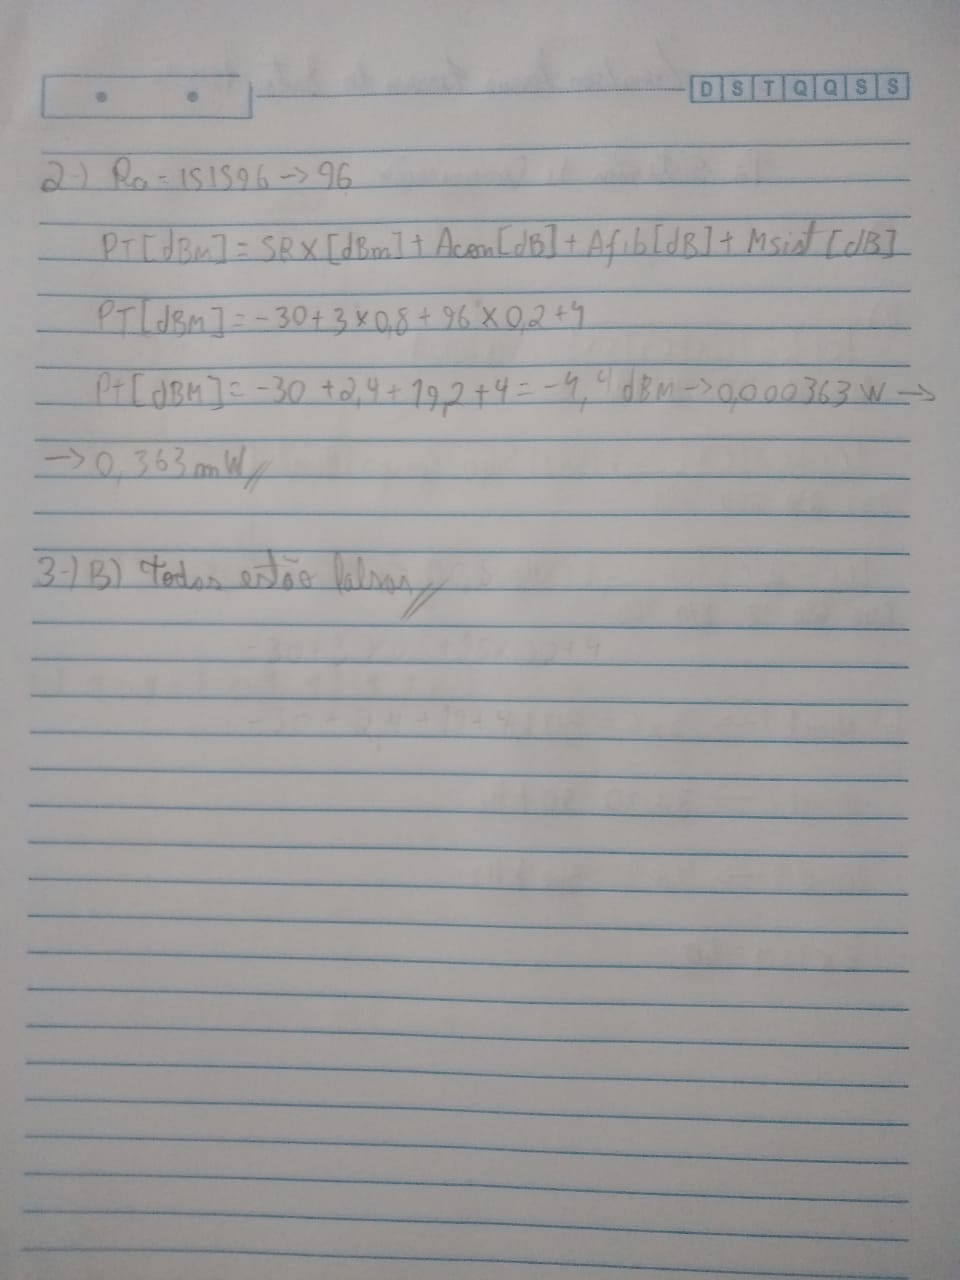 D S T Q Q S S
2-) Ra = 151596 -> 96
PT[dBm] = SRX[dBm] + Acon[dB] + Afib[dB] + Msist[dB]
PT[dBM] = -30 + 3 x 0,8 + 96 x 0,2 + 4
Pt[dBM] = -30 + 2,4 + 19,2 + 4 = -4,4 dBM -> 0,000363 W ->
-> 0,363 mW//
3-) B) Todas estão falsas//